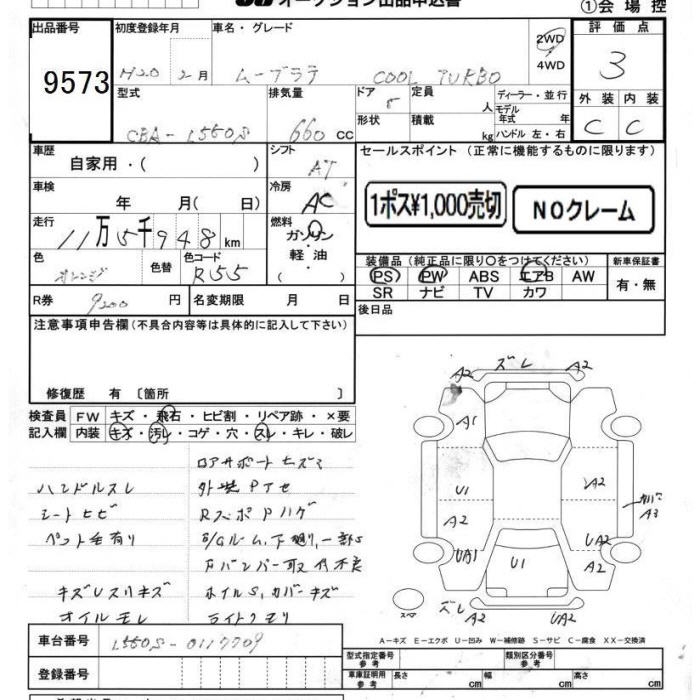 オークション出品申込書 ①会場控
出品番号 9573
初度登録年月 H20 2月
車名・グレード ムーブラテ COOL TURBO
2WD
4WD
評価点 3
型式 CBA-L550S
排気量 660 CC
ドア 5
形状
定員 人
積載 kg
ディーラー・並行
モデル年式 年
ハンドル 左・右
外装 C
内装 C
車歴 自家用・( )
シフト AT
車検 年 月( 日)
冷房 AC
走行 11万5千948km
燃料 ガソリン
軽油・
( )
色 オレンジ
色替
色コード R55
R券 9200円
名変期限 月 日
セールスポイント (正常に機能するものに限ります)
1ポス¥1,000売切
NOクレーム
装備品 (純正品に限り○をつけてください)
新車保証書
PS PW ABS エアB AW
SR ナビ TV カワ
有・無
後日品
注意事項申告欄(不具合内容等は具体的に記入して下さい)
修復歴 有〔箇所 〕
検査員記入欄
FW キズ・飛石・ヒビ割・リペア跡・×要
内装 キズ・汚レ・コゲ・穴・スレ・キレ・破レ
ハンドルスレ
シートヒビ
ペット毛有り
キズUスリキズ
オイルモレ
外装PTセ
RスポPハゲ
Fバンパー取付不良
ホイルS、カバーキズ
ライトクモリ
A2 ズレ A2
A1
U1
A2
A2
カバA3
UA1
U1
UA2
A2
ズレ
A2
UA2
A-キズ E-エクボ U-凹み W-補修跡 S-サビ C-腐食 XX-交換済
車台番号 L550S-0117709
登録番号
型式指定番号 参考
類別区分番号 参考
車庫証明用 参考
長さ cm
幅 cm
高さ cm